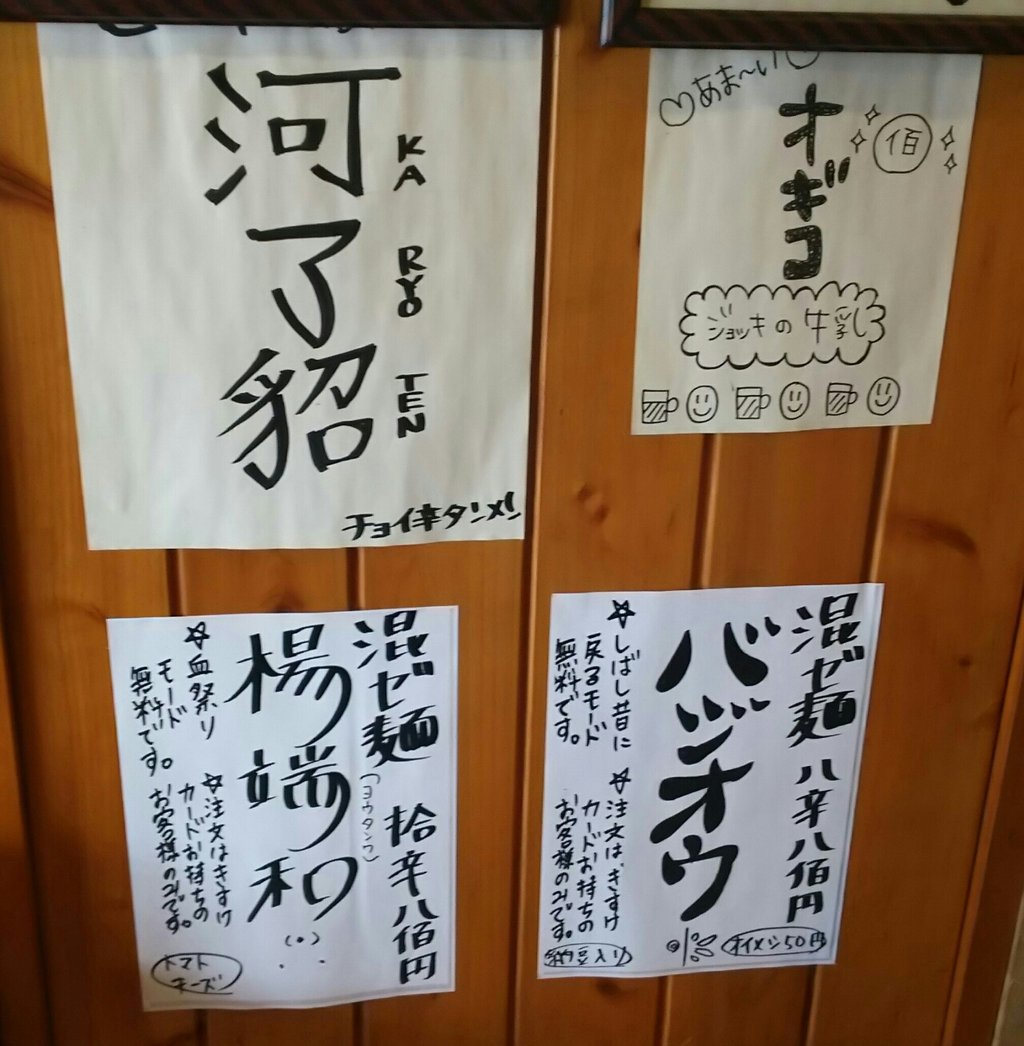 河了貂
KA RYO TEN
チョイ辛タンメン
あま〜い
オギコ
佰
ジョッキの牛乳
混ゼ麺 拾辛八佰円
楊端和
(ヨウタンワ)
☆血祭り
モード
無料です。
☆注文はきすけ
カードお持ちの
お客様のみです。
トマト
チーズ
混ゼ麺 八辛八佰円
バジオウ
☆しばし昔に
戻るモード
無料です。
☆注文は、きすけ
カードお持ちの
お客様のみです。
納豆入り
オイメシ50円